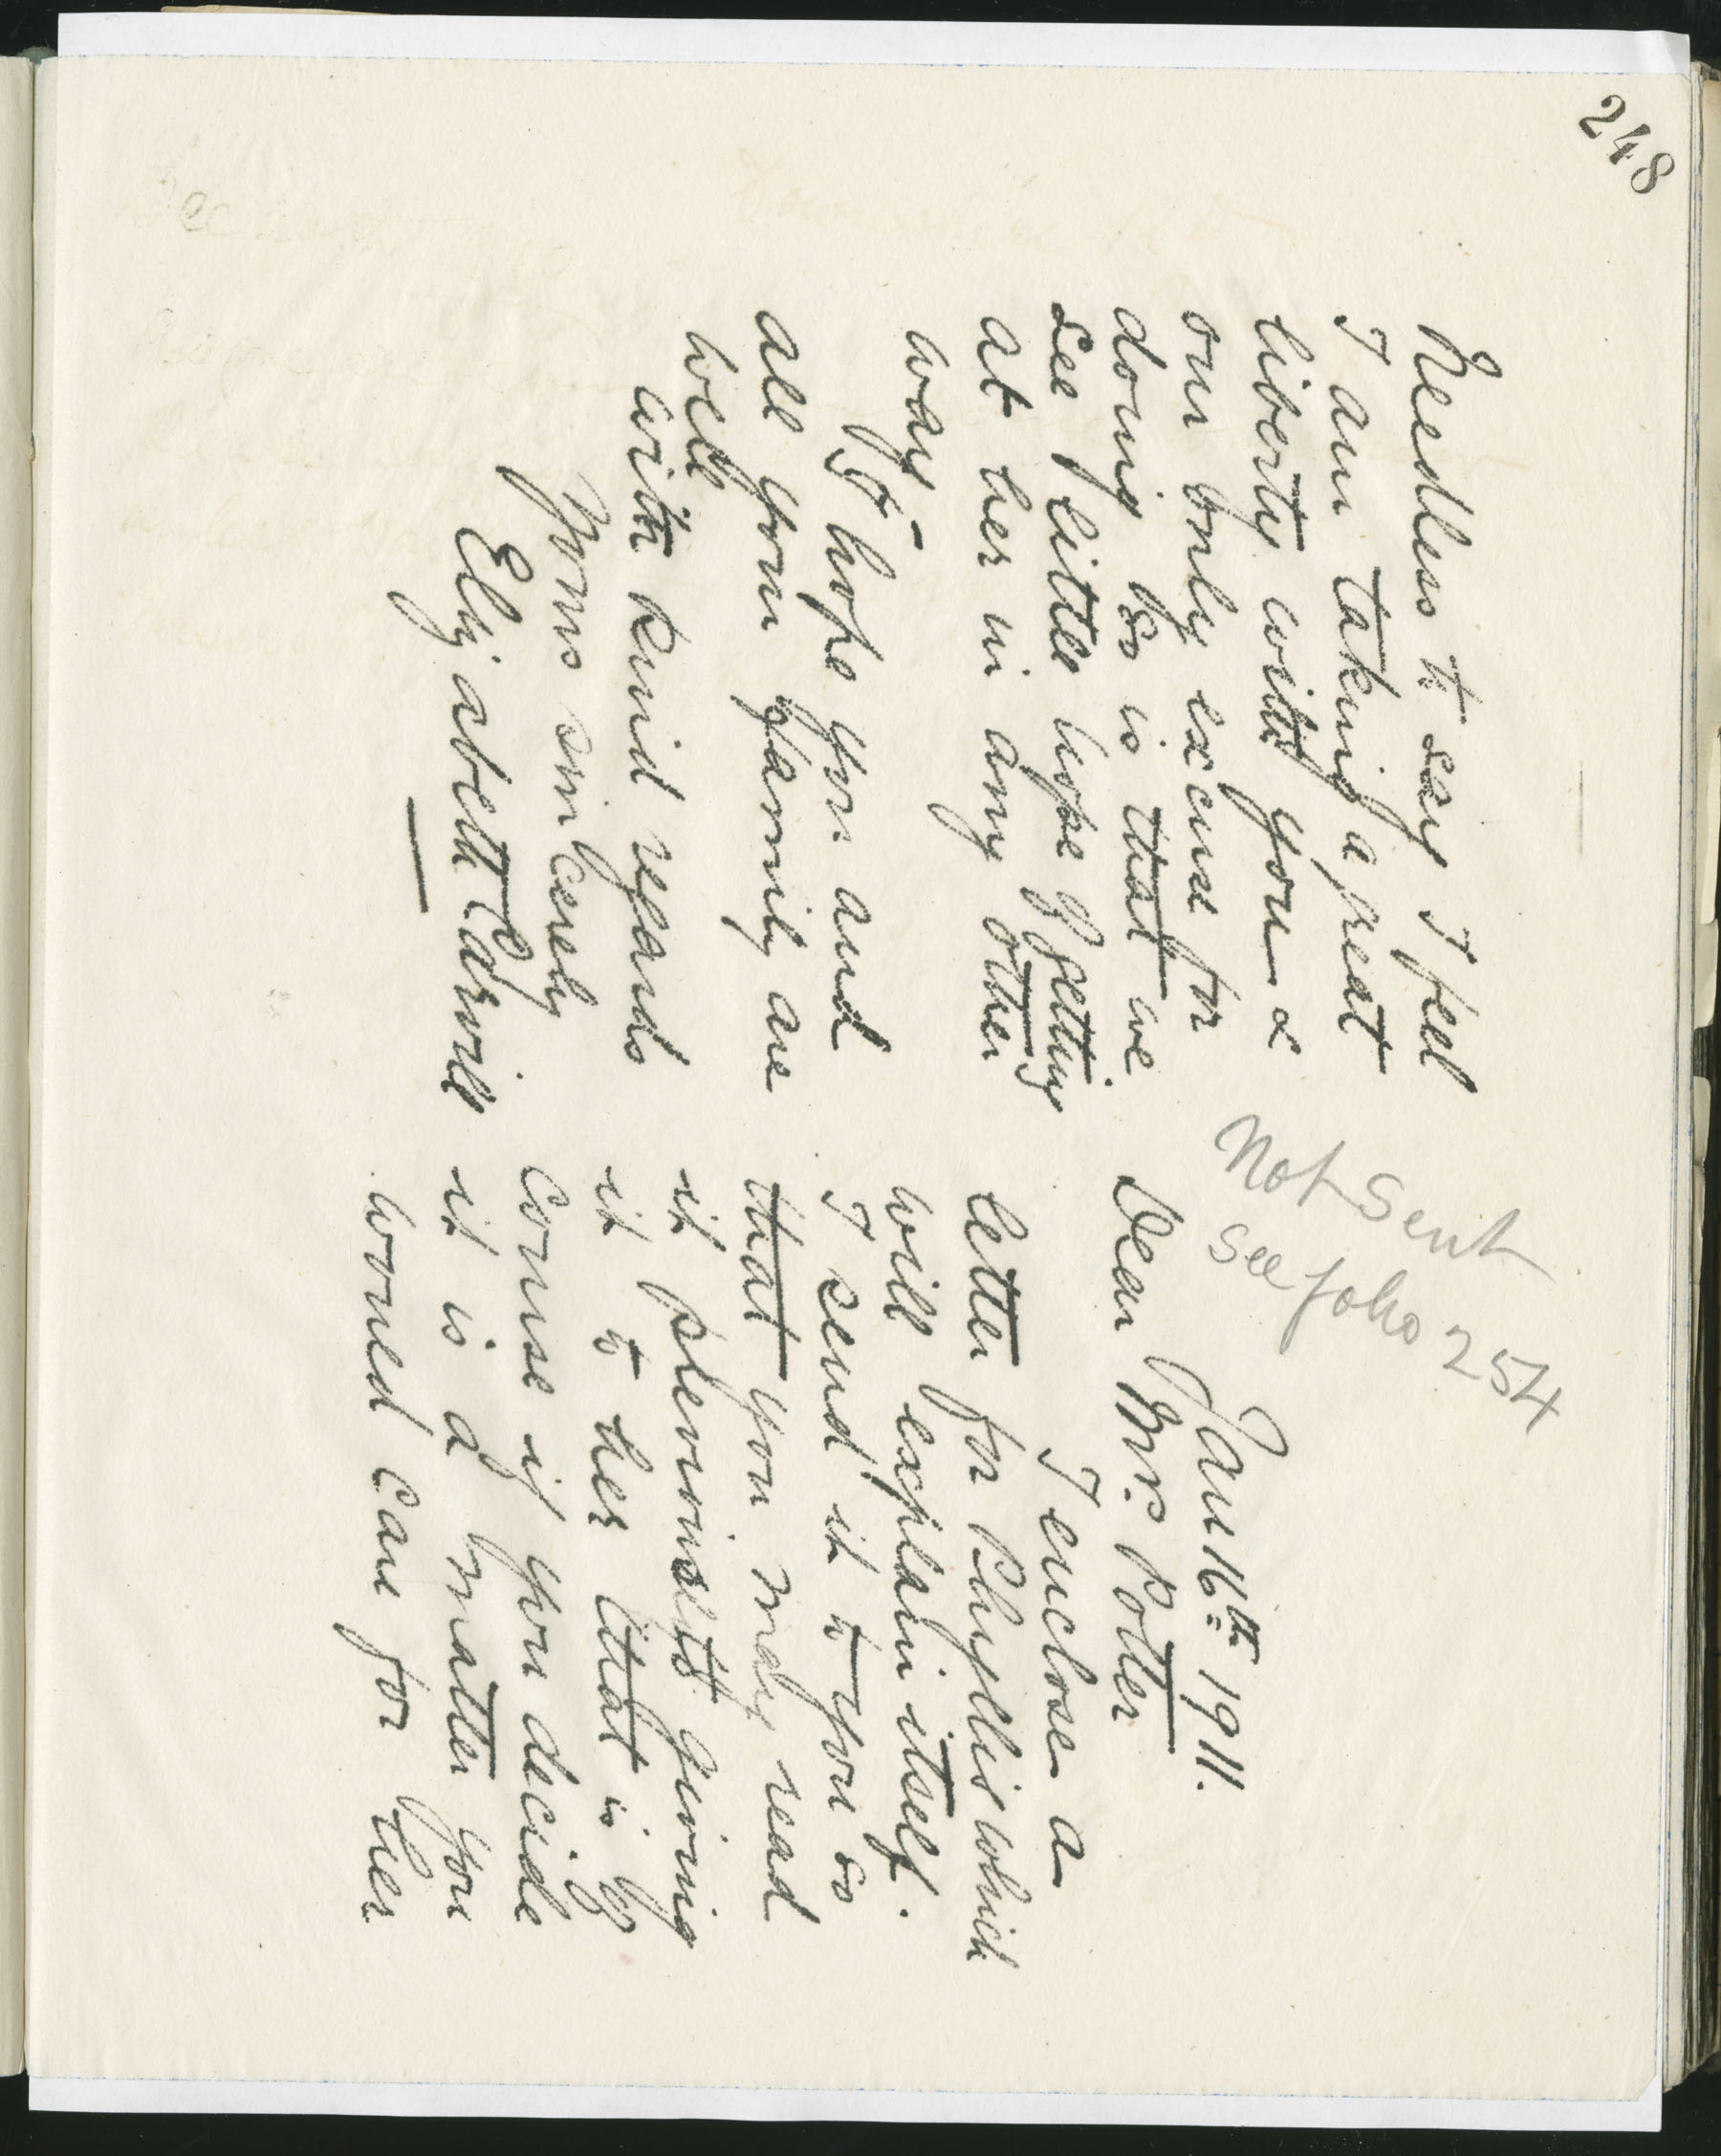 248
Not sent
see folio 254
Jan 16th 1911.
Dear Mrs. Potter
I enclose a
letter for Phyllis which
will explain itself.
I send it to you so
that you may read
it previous to giving
it to her that is of
course if you decide
it is a matter you
would care for her
Needless to say I feel
I am taking a great
liberty with you &
our only excuse for
doing so is that we
see little hope of getting
at her in any other
way -
I hope you and
all your family are
well
with kind regards
Yours sincerely
Elizabeth Carwill